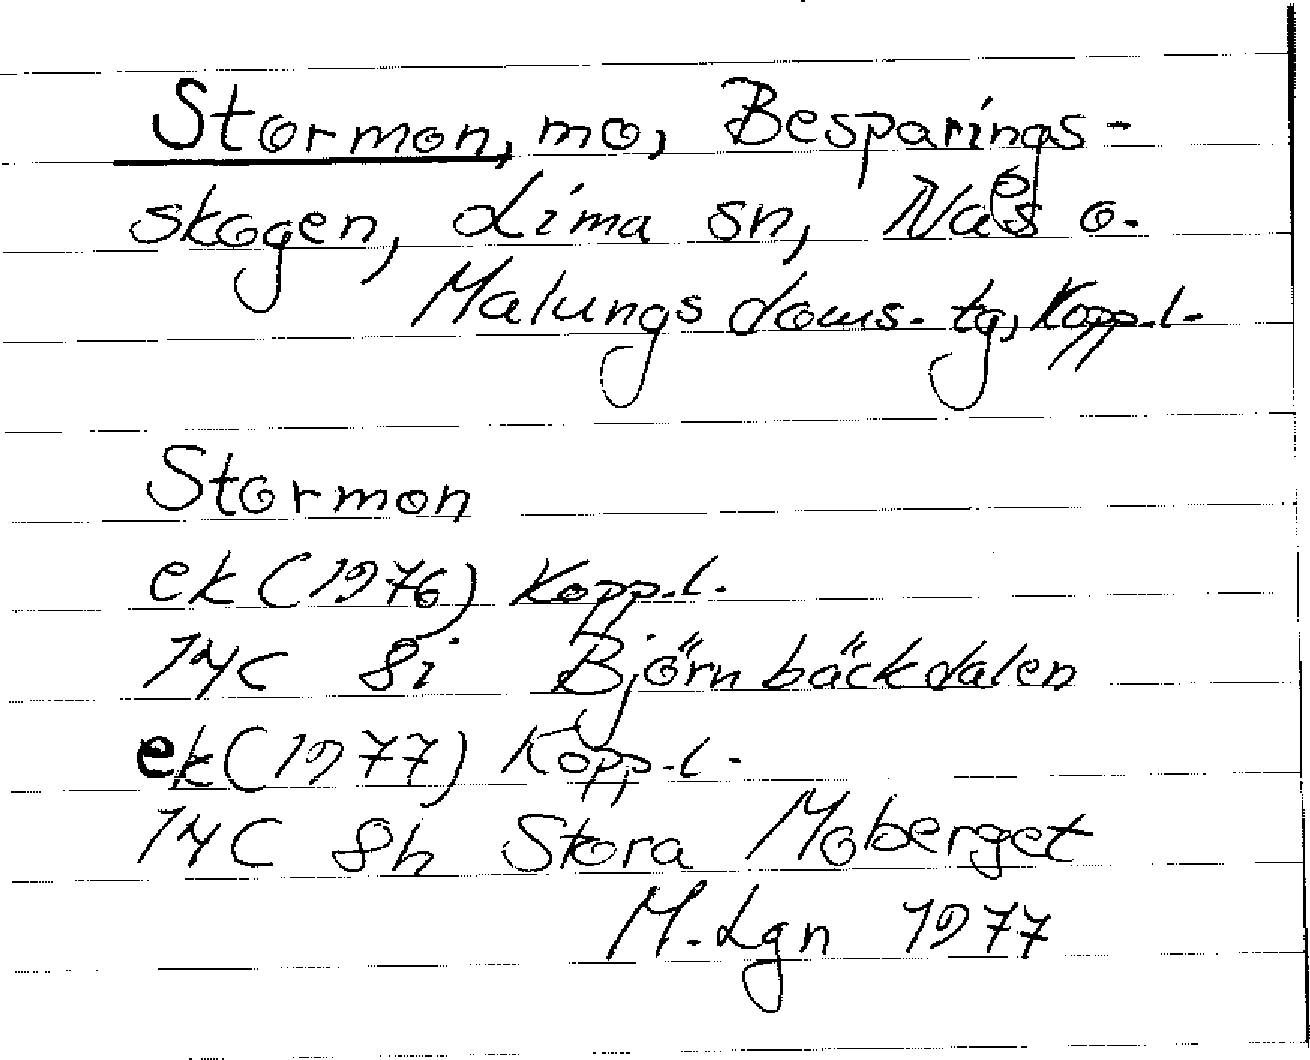 Stormon, mo, Besparings-
skogen, Lima sn, Nås o.
Malungs doms. tg, Kopp.l.
Stormon
ek (1976) Kopp.l.
14C 8i Björnbäckdalen
ek (1977) Kopp.l.
14C 8h Stora Moberget
M.Lgn 1977